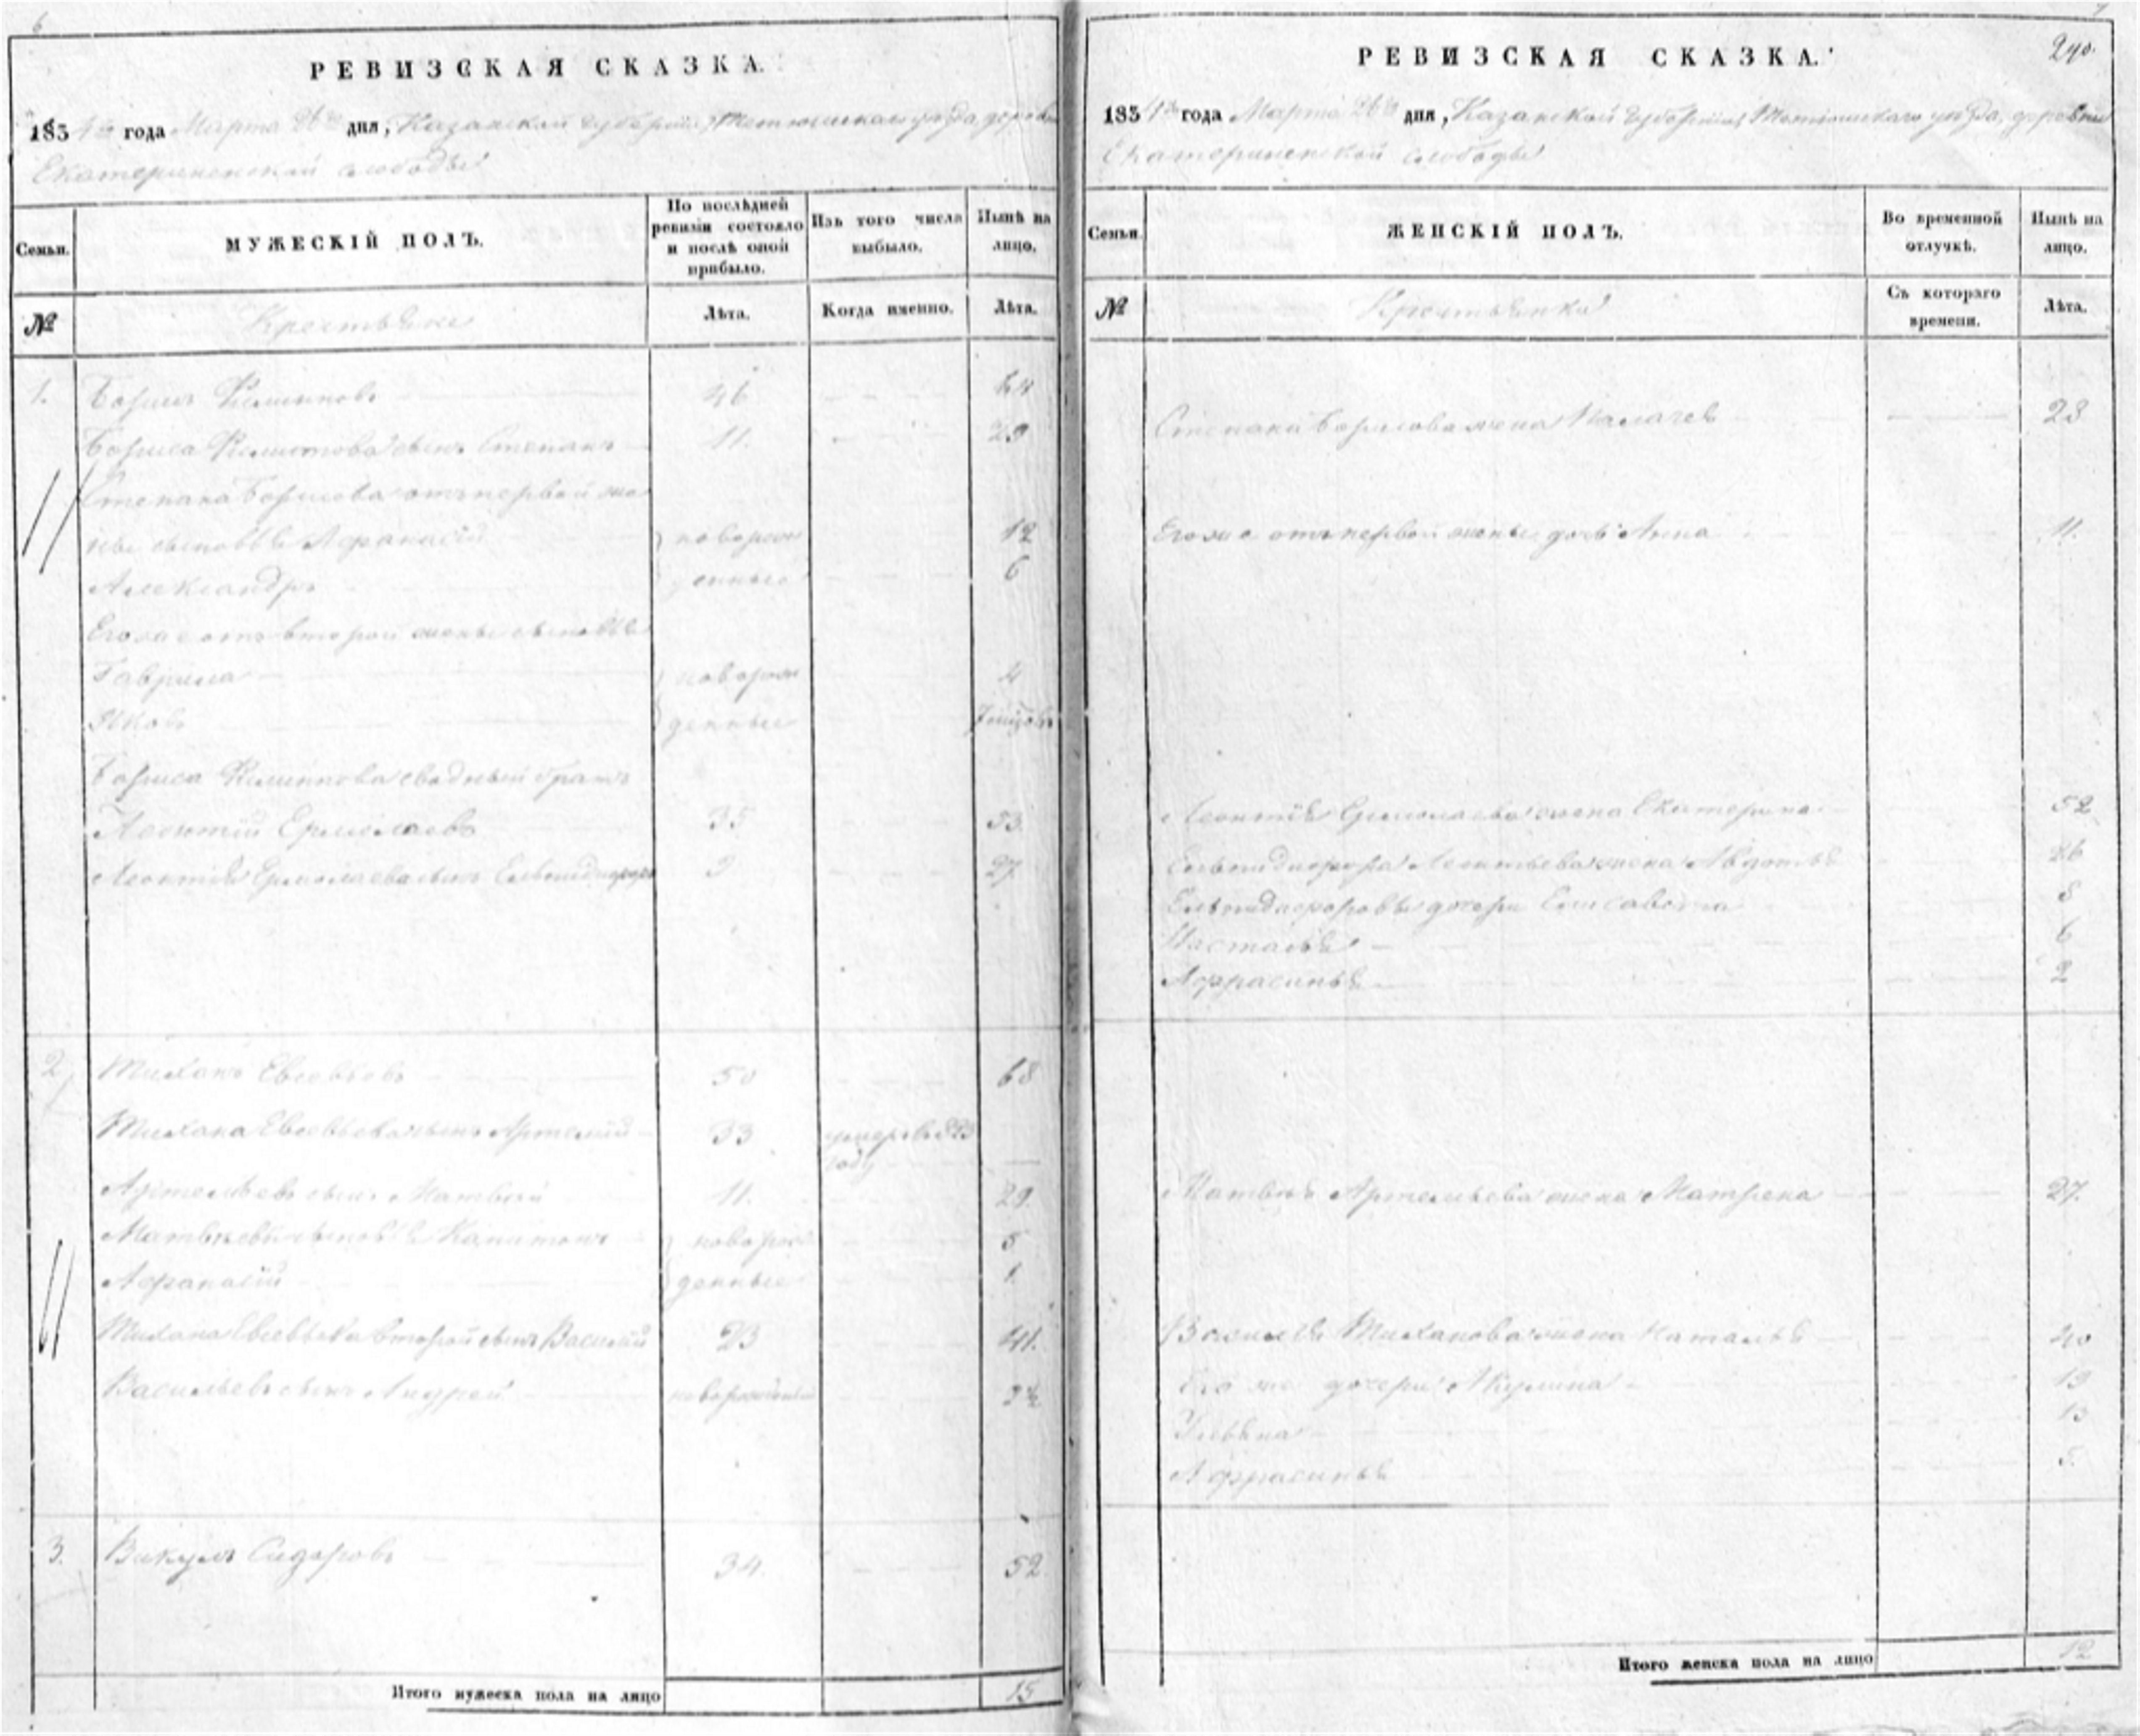 6
РЕВИЗСКАЯ СКАЗКА.
1834го года Марта 26го дня, Казанской губернии, Тетюшскаго уезда деревни
Екатериненской слободы
Семьи.
МУЖЕСКІЙ ПОЛЪ.
По послѣдней ревизіи состояло и послѣ оной прибыло.
Изъ того числа выбыло.
Нынѣ на лицо.
№
Крестьяне
Лѣта.
Когда именно.
Лѣта.
1. Борисъ Филиповъ 46 64
Бориса Филипова сынъ Степанъ 11. 29
Степана Борисова отъ первой же
ны сыновья Афанасій новорож 12
Александръ денные 6
Егоже отъ второй жены сыновья
Гаврила новорож 4
Яковъ денные
Бориса Филипова сводный братъ
Леонтій Ермолаевъ 35 53
Леонтія Ермолаева сынъ 9 27
2. Тиханъ Евсевьевъ 50 68
Тихана Евсевьева сынъ Артемій 33
году
Артемьевъ сынъ Матвей 11. 29.
Матвеевы сыновья Капитонъ новорож 5
Афанасій денные 1.
Тихана Евсевьева второй сынъ Василий 23 41.
Васильевъ сынъ Андрей новорожденный 2½
3. Викулъ Сидоровъ 34. 52
Итого мужеска пола на лицо 15
7
240.
РЕВИЗСКАЯ СКАЗКА.
1834го года Марта 26го дня, Казанской губернии, Тетюшскаго уезда, деревни
Екатериненской слободы
Семьи.
ЖЕНСКІЙ ПОЛЪ.
Во временной отлучкѣ.
Нынѣ на лицо.
№
Крестьянки
Съ котораго времени.
Лѣта.
Степана Борисова жена 23
Егоже отъ первой жены дочь Анна 11.
Леонтія Ермолаева жена Екатерина 52
Леонтьева жена Авдотья 26
дочери Елисавета 8
Настасья 6
Афрасинья 2
Матвея Артемьева жена Матрена 27.
Василья Тиханова жена Наталья 40
Его же дочери Акулина 19
Ульяна 13
Афрасинья 5.
Итого женска пола на лицо 12